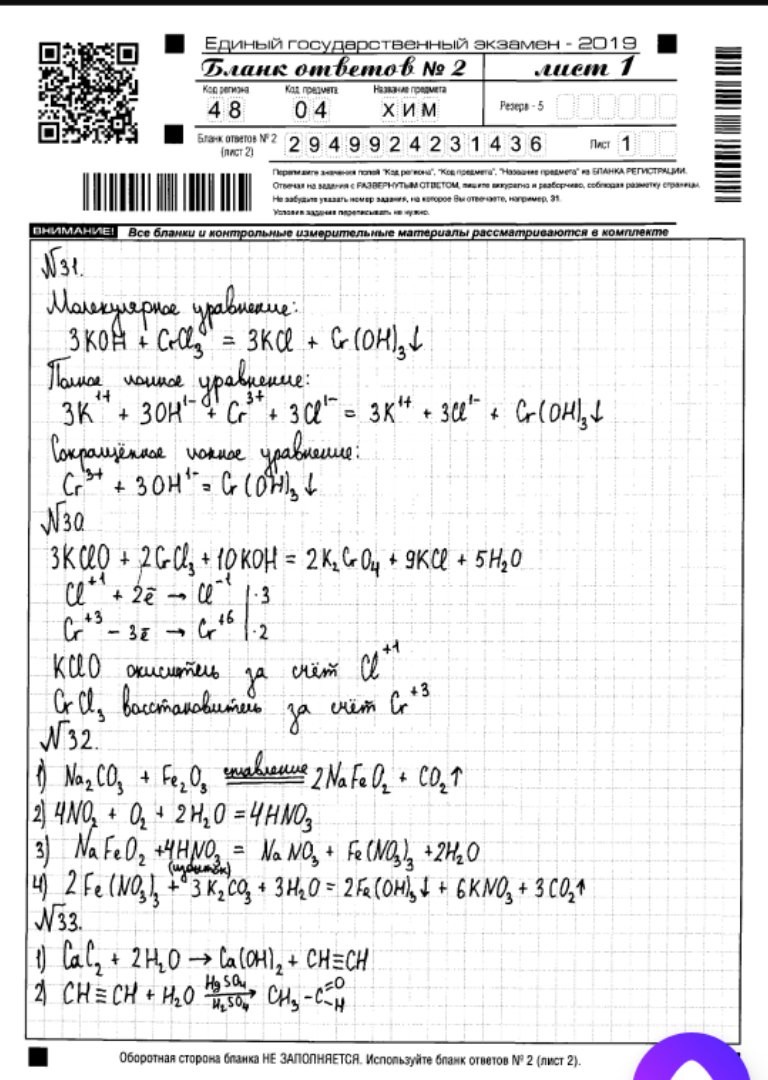 Единый государственный экзамен - 2019
Бланк ответов № 2 лист 1
Код региона Код предмета Название предмета
48 04 ХИМ Резерв - 5
Бланк ответов № 2 (лист 2) 2949924231436 Лист 1
Перепишите значения полей "Код региона", "Код предмета", "Название предмета" из БЛАНКА РЕГИСТРАЦИИ.
Отвечая на задания с РАЗВЕРНУТЫМ ОТВЕТОМ, пишите аккуратно и разборчиво, соблюдая разметку страницы.
Не забудьте указать номер задания, на которое Вы отвечаете, например, 31.
Условия задания переписывать не нужно.
ВНИМАНИЕ! Все бланки и контрольные измерительные материалы рассматриваются в комплекте
№31.
Молекулярное уравнение:
3KOH + CrCl₃ = 3KCl + Cr(OH)₃↓
Полное ионное уравнение:
3K¹⁺ + 3OH¹⁻ + Cr³⁺ + 3Cl¹⁻ = 3K¹⁺ + 3Cl¹⁻ + Cr(OH)₃↓
Сокращённое ионное уравнение:
Cr³⁺ + 3OH¹⁻ = Cr(OH)₃↓
№30.
3KClO + 2CrCl₃ + 10KOH = 2K₂CrO₄ + 9KCl + 5H₂O
Cl⁺¹ + 2ē → Cl⁻¹ | ·3
Cr⁺³ − 3ē → Cr⁺⁶ | ·2
KClO окислитель за счёт Cl⁺¹
CrCl₃ восстановитель за счёт Cr⁺³
№32.
1) Na₂CO₃ + Fe₂O₃ сплавление 2NaFeO₂ + CO₂↑
2) 4NO₂ + O₂ + 2H₂O = 4HNO₃
3) NaFeO₂ + 4HNO₃ = NaNO₃ + Fe(NO₃)₃ + 2H₂O
(избыток)
4) 2Fe(NO₃)₃ + 3K₂CO₃ + 3H₂O = 2Fe(OH)₃↓ + 6KNO₃ + 3CO₂↑
№33.
1) CaC₂ + 2H₂O → Ca(OH)₂ + CH≡CH
2) CH≡CH + H₂O HgSO₄ H₂SO₄ → CH₃-C=O -H
Оборотная сторона бланка НЕ ЗАПОЛНЯЕТСЯ. Используйте бланк ответов № 2 (лист 2).